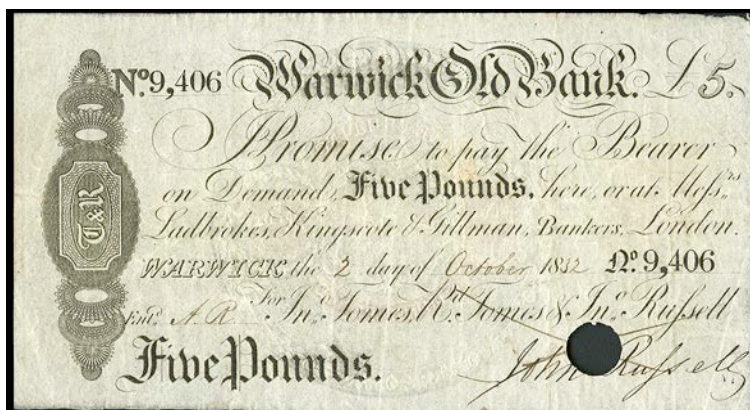 No. 9,406 Warwick Old Bank. £5.
I Promise to pay the Bearer
on Demand, Five Pounds, here, or at Messrs
Ladbrokes, Kingscote & Gillman, Bankers, London.
WARWICK the 2 day of October 1832 No. 9,406
For Jno. Tomes, Rd. Tomes & Jno. Russell
Entd. A.R
Five Pounds.
John Russell
T&R